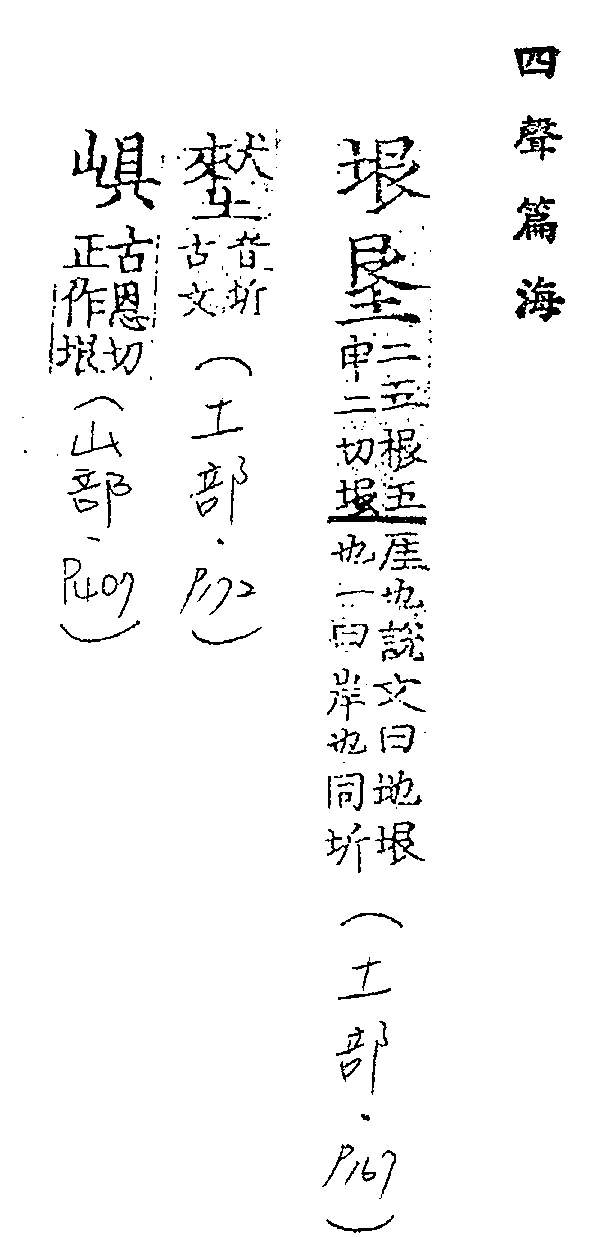 四聲篇海
垠垦二五根五申二切垠厓也說文曰地垠也一曰岸也同圻(土部·P167)
音圻古文(土部·P172)
塡古恩切正作垠(山部·P407)